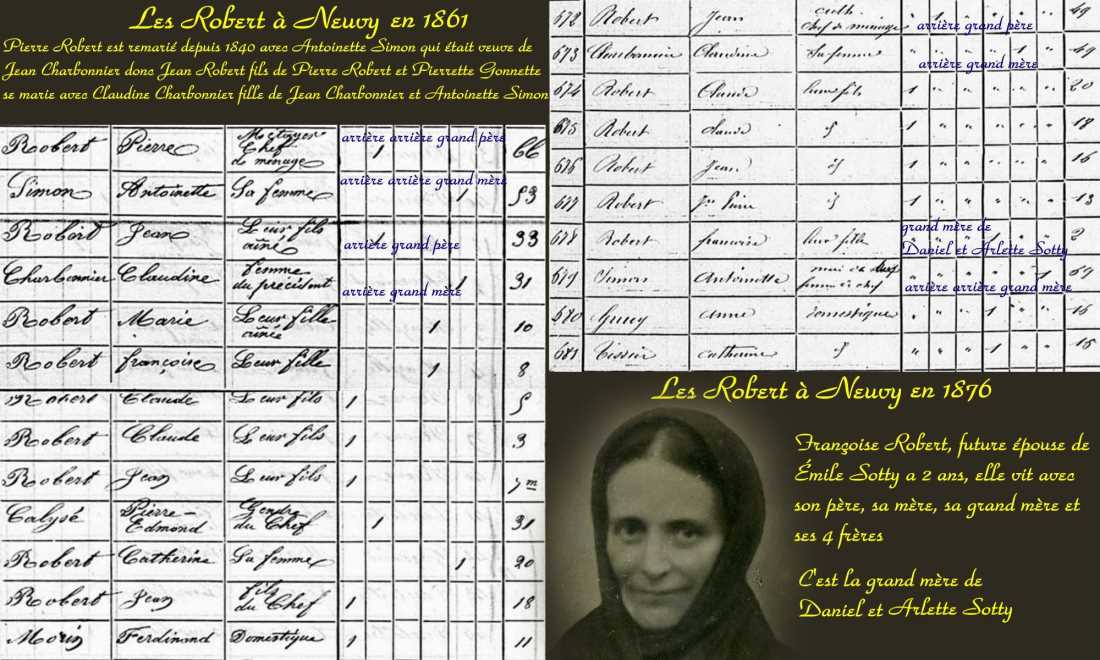 Les Robert à Neuvy en 1861
Pierre Robert est remarié depuis 1840 avec Antoinette Simon qui était veuve de
Jean Charbonnier donc Jean Robert fils de Pierre Robert et Pierrette Gonnette
se marie avec Claudine Charbonnier fille de Jean Charbonnier et Antoinette Simon
Robert Pierre Métayer Chef de ménage arrière arrière grand père 1 66
Simon Antoinette Sa femme arrière arrière grand mère 1 53
Robert Jean Leur fils aîné arrière grand père 1 33
Charbonnier Claudine femme du précédent arrière grand mère 1 31
Robert Marie Leur fille aînée 1 10
Robert françoise Leur fille 1 8
Robert Claude Leur fils 1 5
Robert Claude Leur fils 1 3
Robert Jean Leur fils 1 7 m
Calysé Pierre-Edmond Gendre du Chef 1 31
Robert Catherine Sa femme 1 20
Robert Jean fils du Chef 1 18
Morin Ferdinand Domestique 1 11
672 Robert Jean cult. chef de ménage arrière grand père 49
673 Charbonnier Claudine sa femme arrière grand mère 1 49
674 Robert Claude leur fils 1 20
675 Robert Claude 1 18
676 Robert Jean 1 16
677 Robert 1 13
678 Robert francoise leur fille grand mère de Daniel et Arlette Sotty 2
679 Simon Antoinette arrière arrière grand mère 1 69
680 anne domestique 1 16
681 Tissier catherine 1 15
Les Robert à Neuvy en 1876
Françoise Robert, future épouse de
Émile Sotty a 2 ans, elle vit avec
son père, sa mère, sa grand mère et
ses 4 frères
C'est la grand mère de
Daniel et Arlette Sotty